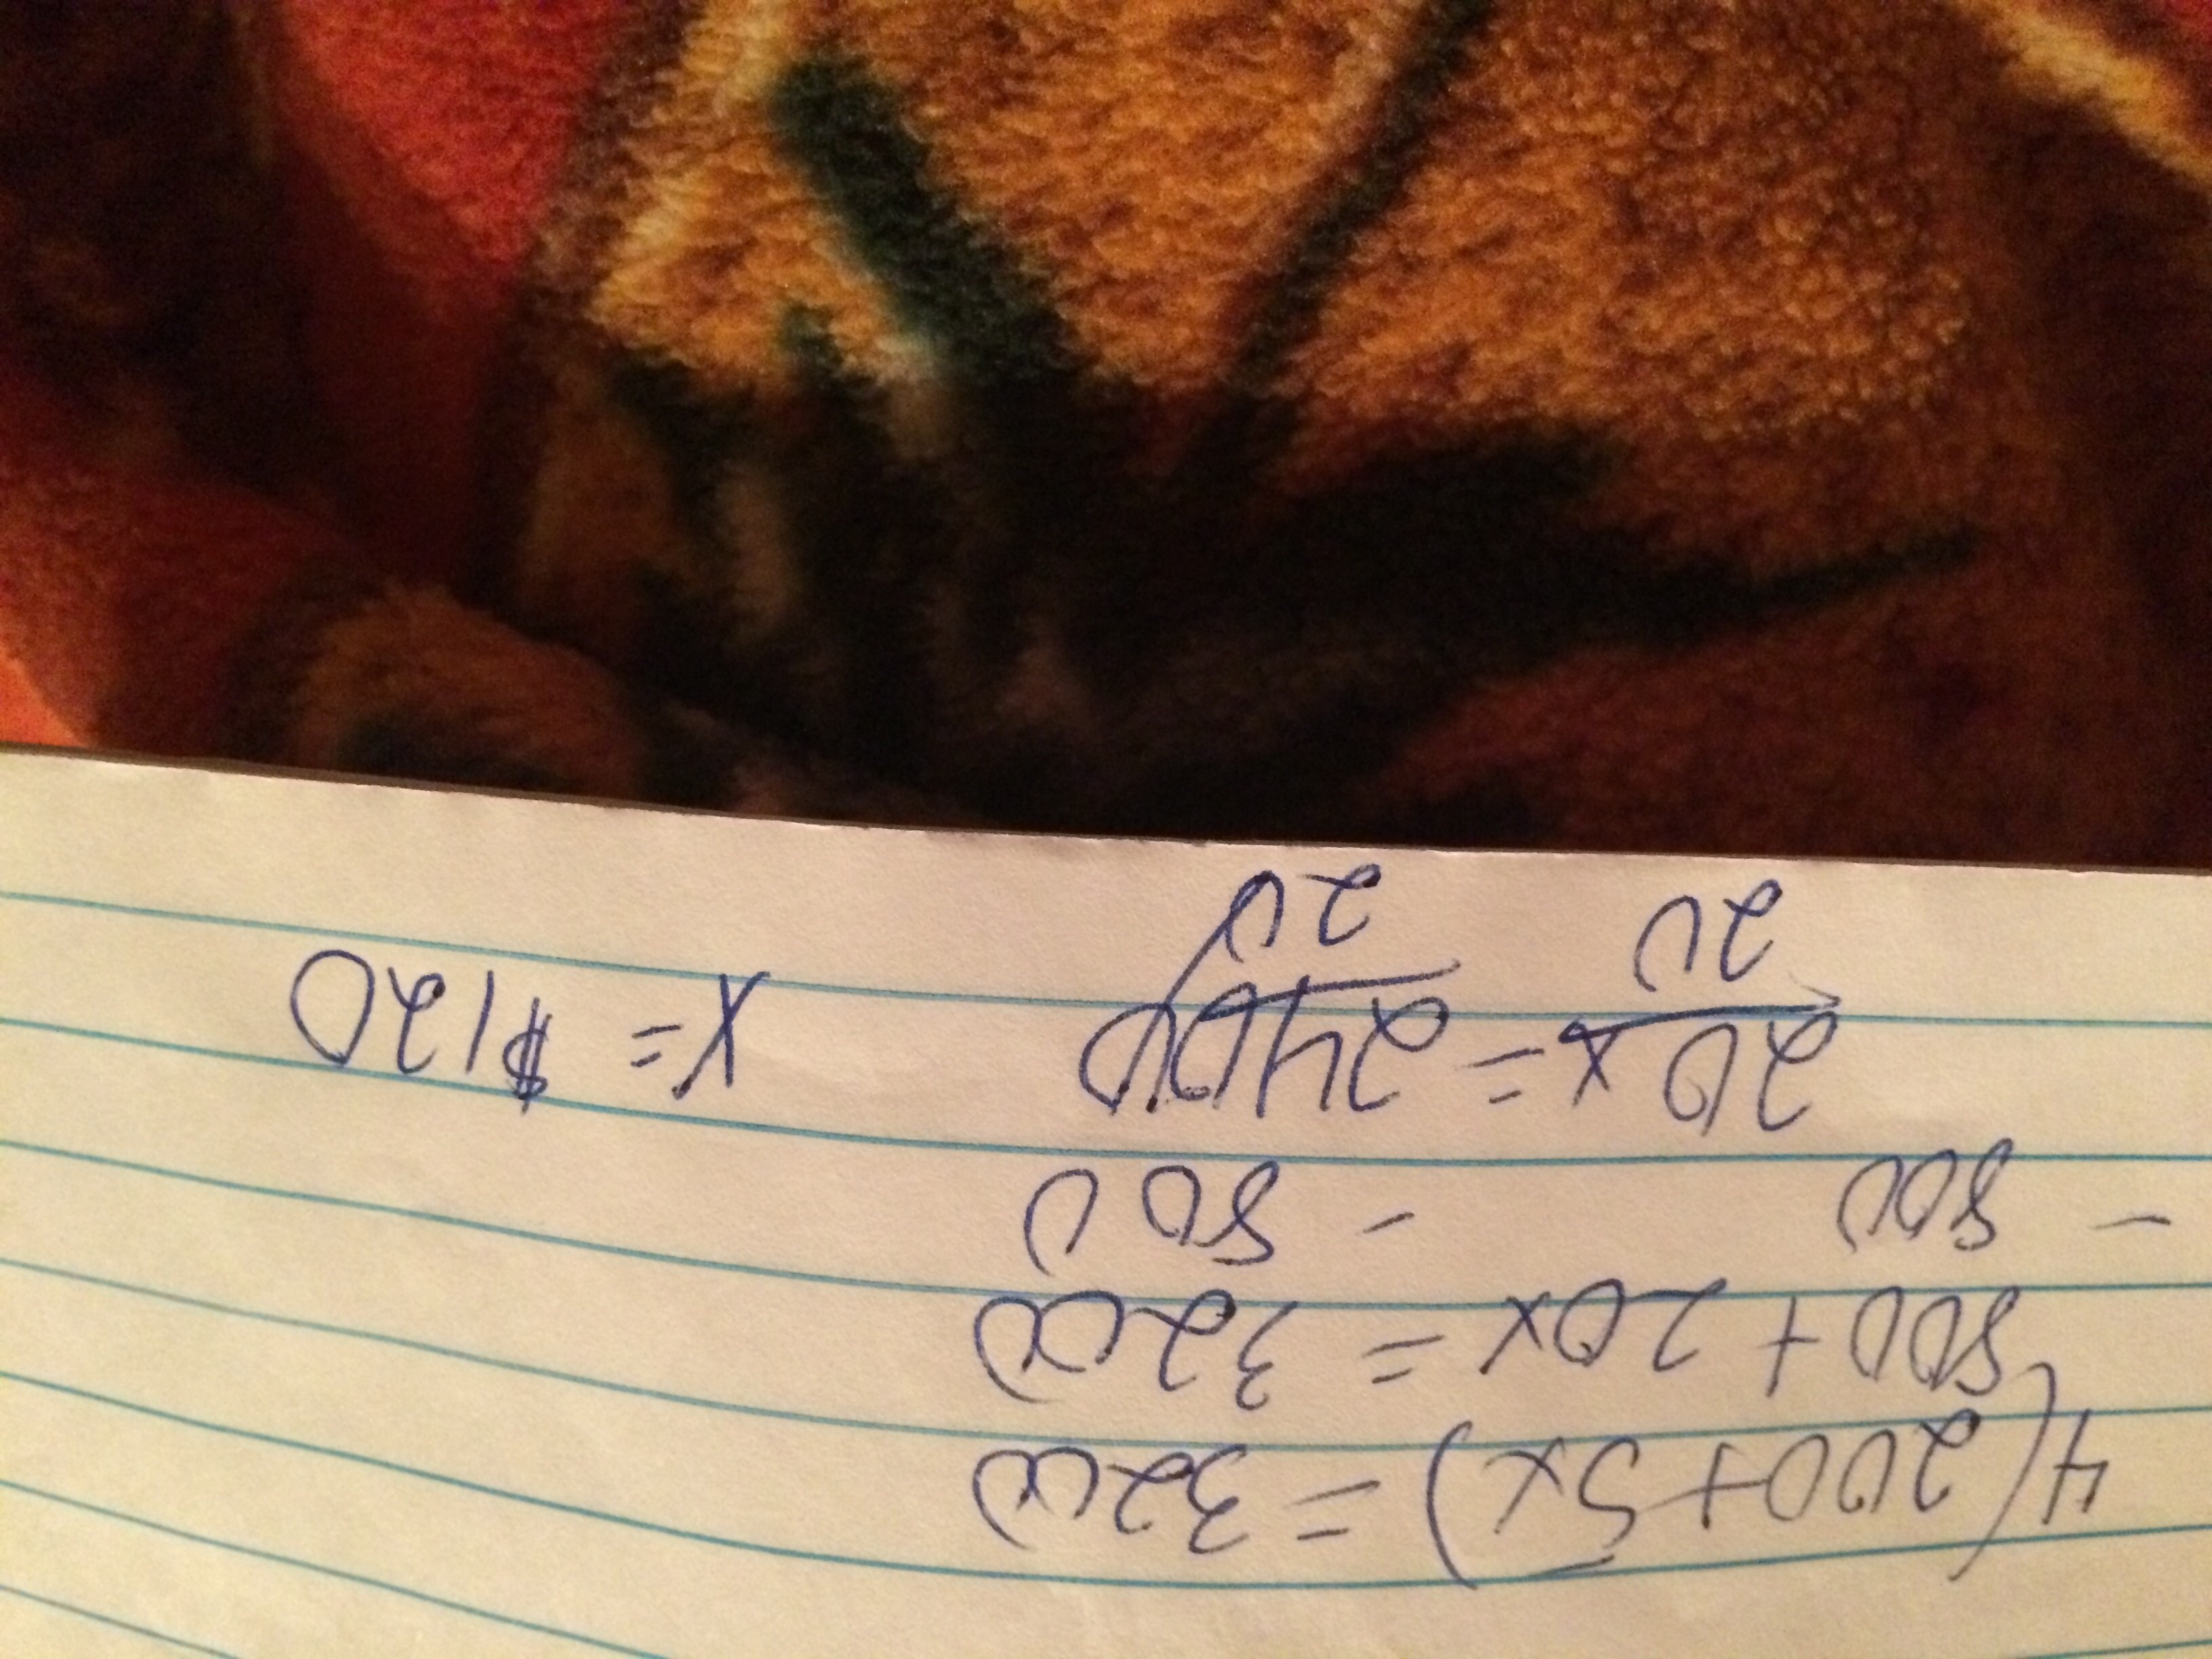 4(200+5x) = 3200
800 + 20x = 3200
- 800 - 800
20x = 2400 x = $120
20 20